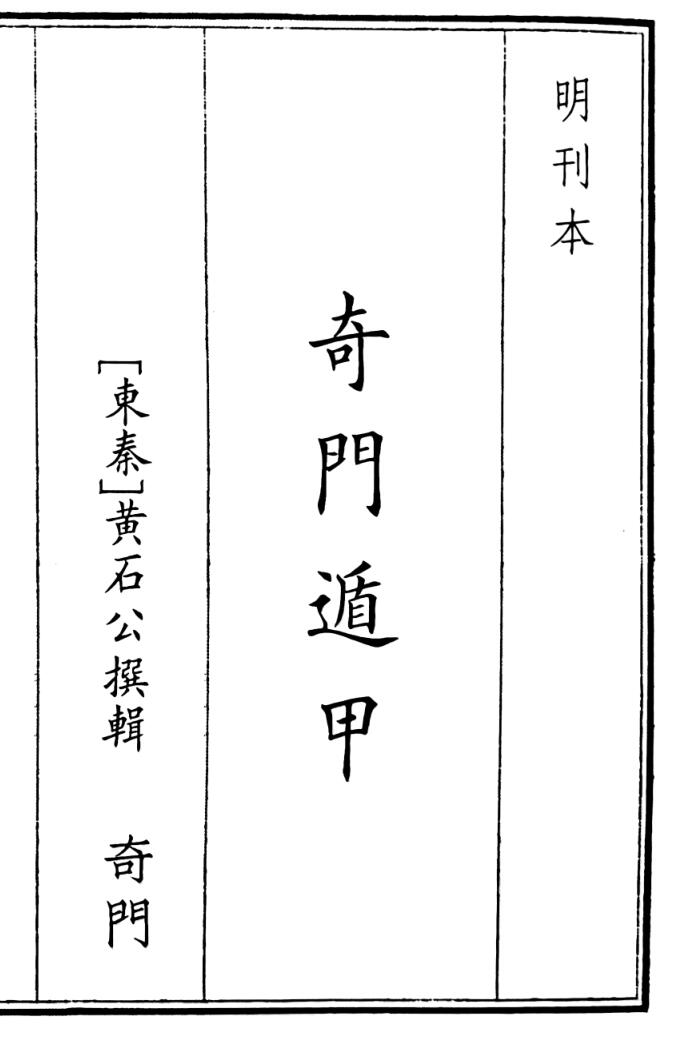 明刊本
奇門遁甲
[東秦]黄石公撰輯 奇門